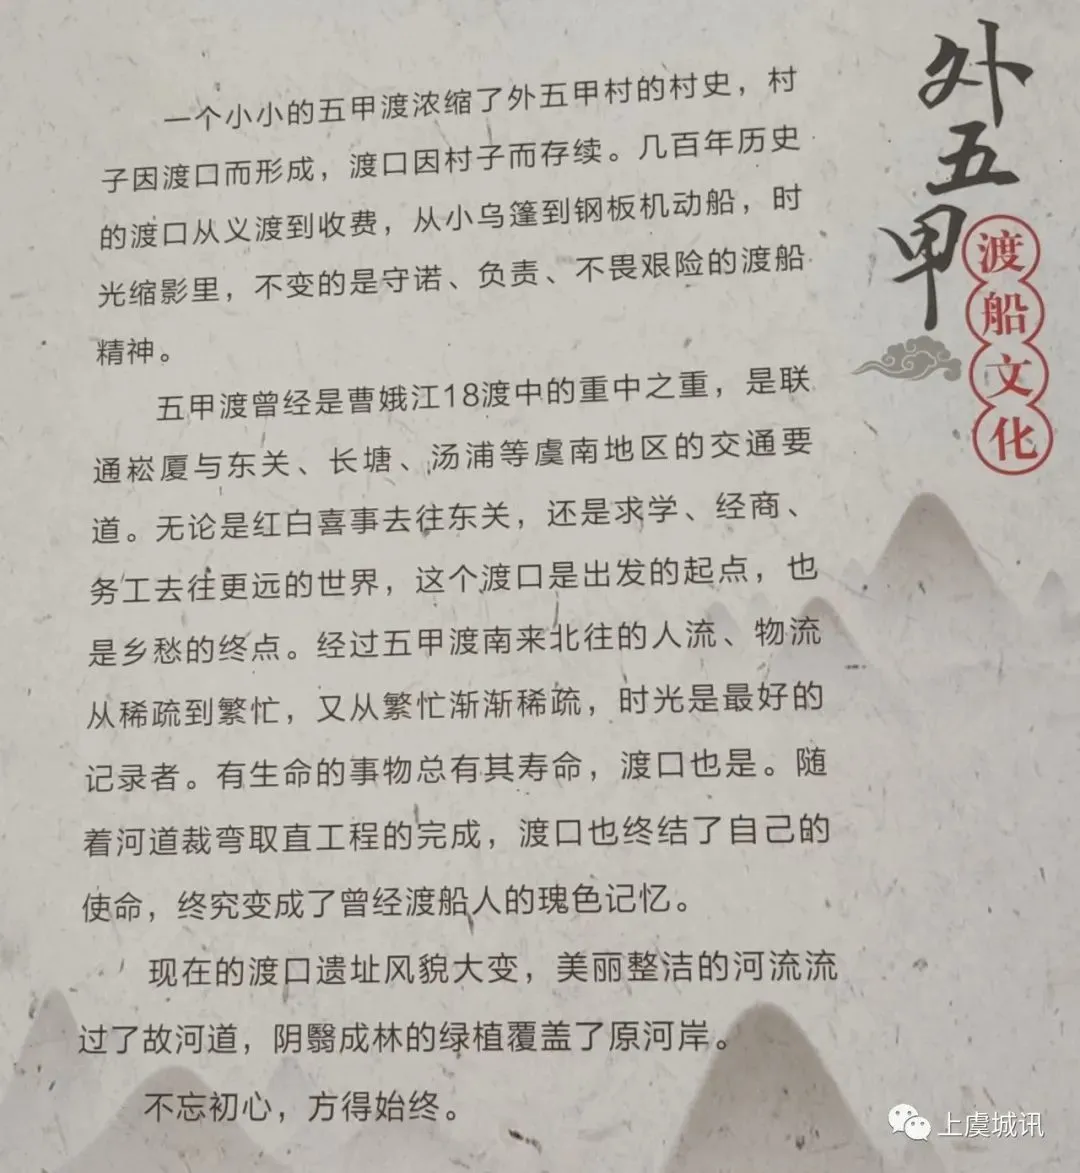 外五甲
渡船文化
一个小小的五甲渡浓缩了外五甲村的村史，村
子因渡口而形成，渡口因村子而存续。几百年历史
的渡口从义渡到收费，从小乌篷到钢板机动船，时
光缩影里，不变的是守诺、负责、不畏艰险的渡船
精神。
五甲渡曾经是曹娥江18渡中的重中之重，是联
通崧厦与东关、长塘、汤浦等虞南地区的交通要
道。无论是红白喜事去往东关，还是求学、经商、
务工去往更远的世界，这个渡口是出发的起点，也
是乡愁的终点。经过五甲渡南来北往的人流、物流
从稀疏到繁忙，又从繁忙渐渐稀疏，时光是最好的
记录者。有生命的事物总有其寿命，渡口也是。随
着河道裁弯取直工程的完成，渡口也终结了自己的
使命，终究变成了曾经渡船人的瑰色记忆。
现在的渡口遗址风貌大变，美丽整洁的河流流
过了故河道，阴翳成林的绿植覆盖了原河岸。
不忘初心，方得始终。
上虞城讯